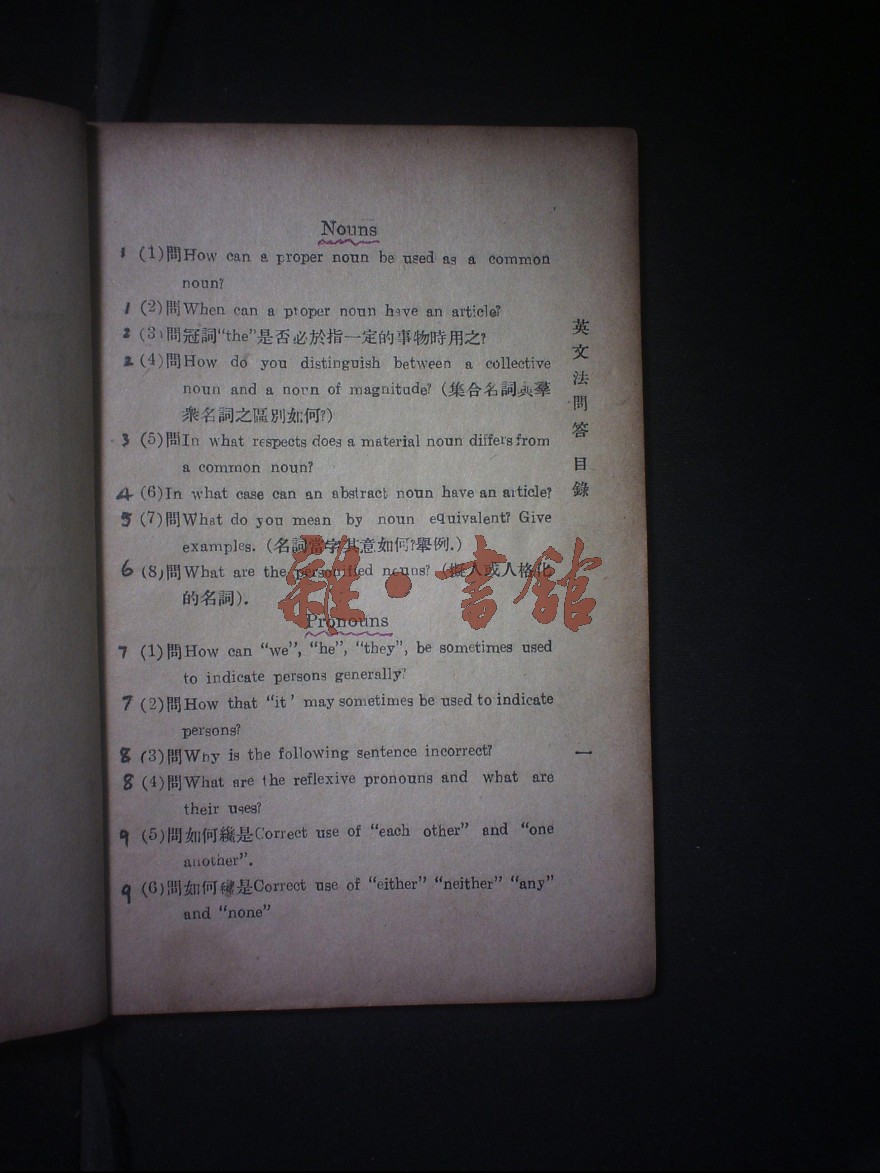 Nouns
1 (1)問How can a proper noun be used as a common
noun?
1 (2)問When can a proper noun have an article?
2 (3)問冠詞“the”是否必於指一定的事物時用之?
2 (4)問How do you distinguish between a collective
noun and a norn of magnitude? (集合名詞與羣
衆名詞之區別如何?)
3 (5)問In what respects does a material noun differs from
a common noun?
4 (6)In what case can an abstract noun have an article?
5 (7)問What do you mean by noun equivalent? Give
examples. (名詞當字其意如何?舉例.)
6 (8)問What are the personified nouns? (擬人或人格化
的名詞).
Pronouns
7 (1)問How can “we”, “he”, “they”, be sometimes used
to indicate persons generally?
7 (2)問How that “it’ may sometimes be used to indicate
persons?
8 (3)問Why is the following sentence incorrect?
8 (4)問What are the reflexive pronouns and what are
their uses?
9 (5)問如何纔是Correct use of “each other” and “one
another”.
9 (6)問如何纔是Correct use of “either” “neither” “any”
and “none”
英文法問答 目錄
一
雜·書館